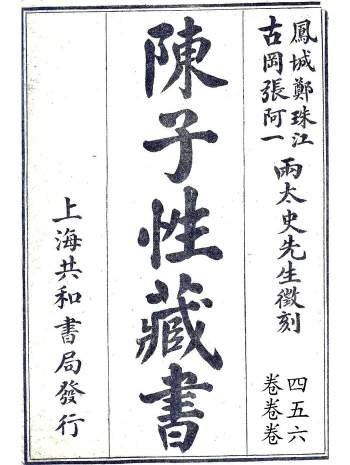 鳳城鄭珠江
古岡張阿一
兩太史先生徵刻
四五六
卷卷卷
陳子性藏書
上海共和書局發行